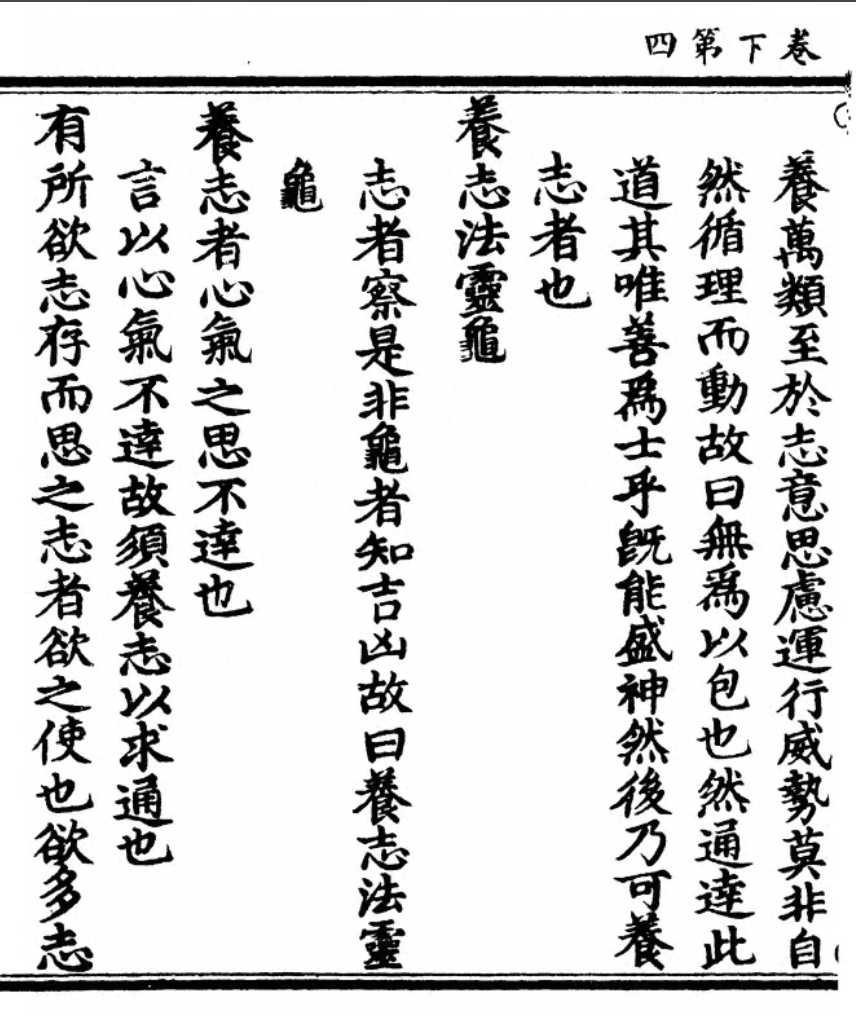 卷下第四
養萬類至於志意思慮運行威勢莫非自
然循理而動故曰無爲以包也然通達此
道其唯善爲士乎旣能盛神然後乃可養
志者也
養志法靈龜
志者察是非龜者知吉凶故曰養志法靈
龜
養志者心氣之思不達也
言以心氣不達故須養志以求通也
有所欲志存而思之志者欲之使也欲多志